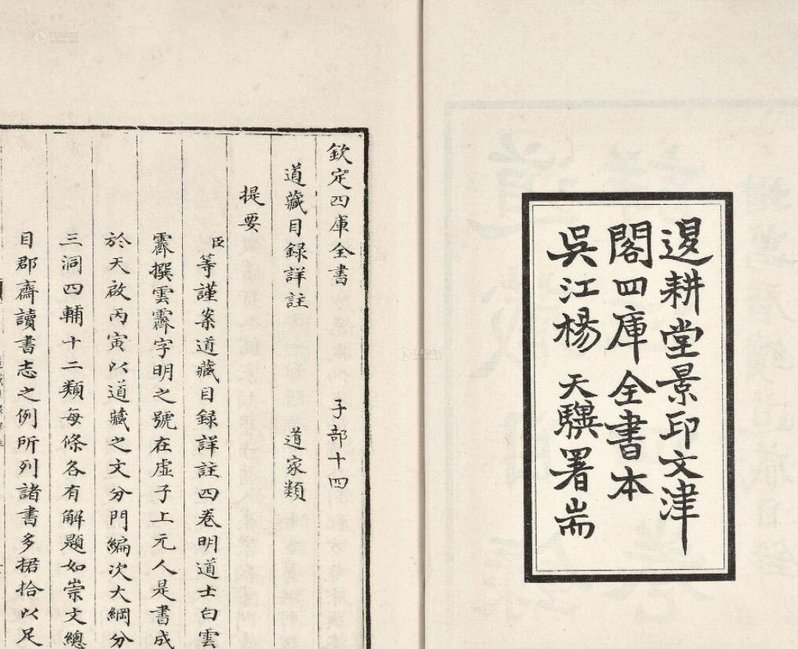 退耕堂景印文津
閣四庫全書本
吳江楊天驥署耑
欽定四庫全書 子部十四
道藏目録詳註 道家類
提要
臣等謹案道藏目録詳註四卷明道士白雲
霽撰雲霽字明之號在虛子上元人是書成
於天啟丙寅以道藏之文分門編次大綱分
三洞四輔十二類每條各有解題如崇文總
目郡齋讀書志之例所列諸書多捃拾以足